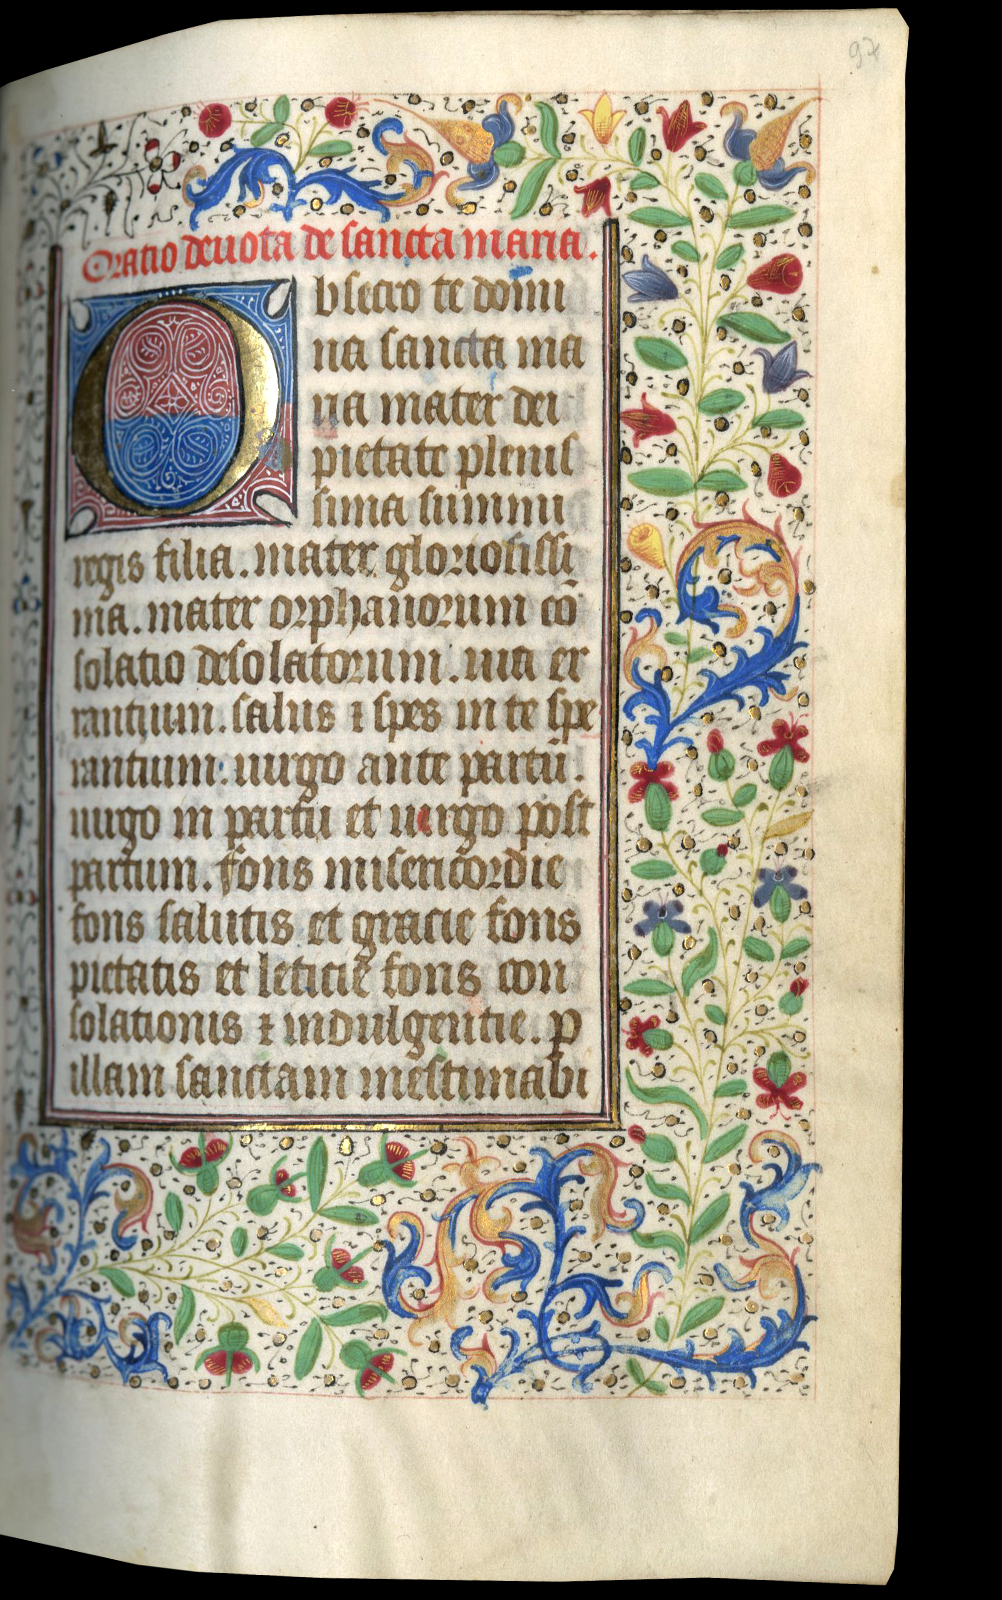 97
Oratio deuota de sancta maria.
Obsecro te domi
na sancta ma
ria mater dei
pietate plenis
sima summi
regis filia. mater gloriosissi
ma. mater orphanorum cō
solatio desolatorum. uia er
rantium. salus ⁊ spes in te spe
rantium. uirgo ante partū.
uirgo in partu et uirgo post
partum. fons misericordie
fons salutis et gracie fons
pietatis et leticie fons con
solationis ⁊ indulgentie. ꝑ
illam sanctam inestimabi